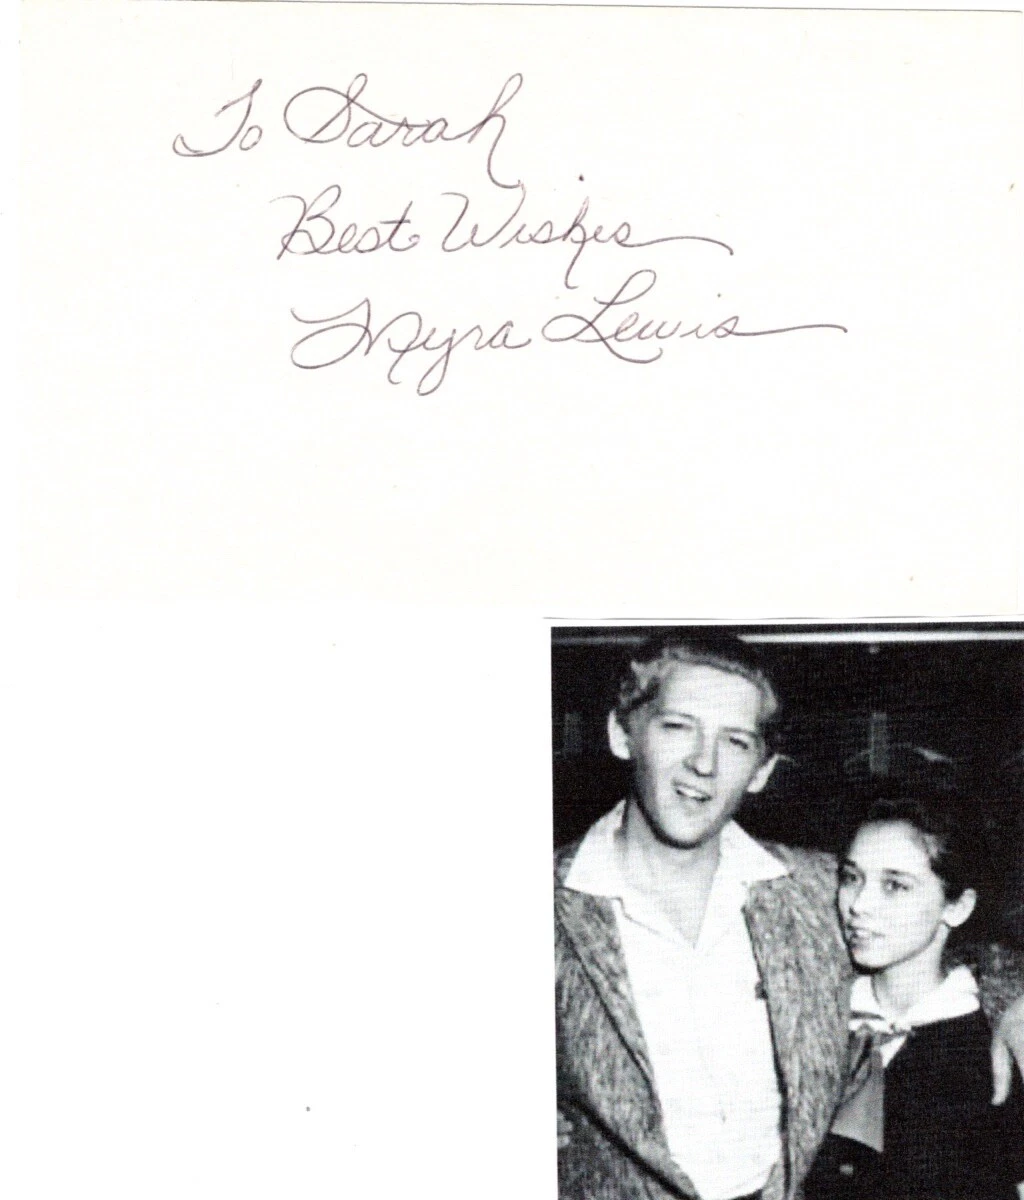 To Sarah
Best Wishes
Myra Lewis